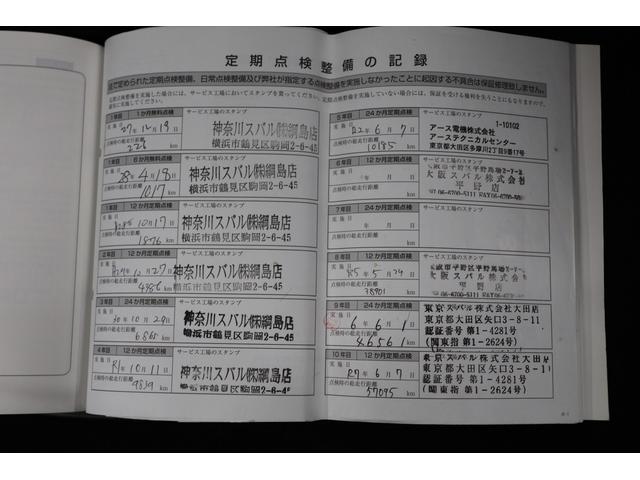 定期点検整備の記録
法で定められた定期点検整備、日常点検整備及び弊社が指定する点検整備を実施しなかったことに起因する不具合は保証修理致しません。
定期点検整備を実施した場合には、サービス工場においてスタンプを貰ってください。
定期点検整備を実施していない場合には、保証を受ける権利を失うこともなりますので、
確実に実施してください。
1年目 1か月無料点検
サービス工場のスタンプ
実施日 27年12月19日
点検時の総走行距離
228 km
神奈川スバル㈱綱島店
横浜市鶴見区駒岡2-6-45
1年目 6か月無料点検
サービス工場のスタンプ
実施日 28年4月18日
点検時の総走行距離
1017 km
神奈川スバル㈱綱島店
横浜市鶴見区駒岡2-6-45
1年目 12か月定期点検
サービス工場のスタンプ
10月17日
点検時の総走行距離
1876 km
神奈川スバル㈱綱島店
横浜市鶴見区駒岡2-6-45
2年目 12か月定期点検
サービス工場のスタンプ
12月27日
点検時の総走行距離
km
神奈川スバル㈱綱島店
横浜市鶴見区駒岡2-6-45
3年目 24か月定期点検
サービス工場のスタンプ
実施日
30年10月29日
点検時の総走行距離
km
神奈川スバル㈱綱島店
横浜市鶴見区駒岡2-6-45
4年目 12か月定期点検
サービス工場のスタンプ
実施日
R1年10月11日
点検時の総走行距離
km
神奈川スバル㈱綱島店
横浜市鶴見区駒岡2-6-45
5年目 24か月定期点検
サービス工場のスタンプ
実施日
22年6月7日
点検時の総走行距離
10185 km
1-10102
アース電機株式会社
アーステクニカルセンター
東京都大田区多摩川2丁目9番17号
6年目 12か月定期点検
サービス工場のスタンプ
実施日
年 月 日
点検時の総走行距離
km
大阪スバル株式会社
平野店
7年目 24か月定期点検
サービス工場のスタンプ
実施日
年 月 日
点検時の総走行距離
km
8年目 12か月定期点検
サービス工場のスタンプ
実施日
R5年5月24日
点検時の総走行距離
38901 km
大阪スバル株式会社
平野店
9年目 24か月定期点検
実施日
6年6月1日
点検時の総走行距離
46561 km
東京スバル株式会社大田店
東京都大田区矢口3-8-11
認証番号 第1-4281号
(関東指 第1-2624号)
10年目 12か月定期点検
実施日
R7年6月7日
点検時の総走行距離
57095 km
東京スバル株式会社大田店
東京都大田区矢口3-8-11
認証番号 第1-4281号
(関東指 第1-2624号)